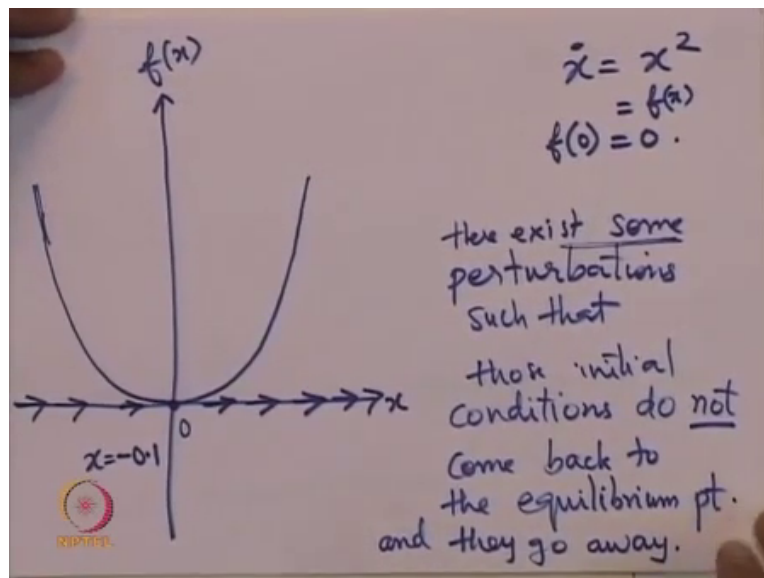 f(x)
ẋ = x²
= f(x)
f(0) = 0.
there exist some
perturbations
such that
those initial
conditions do not
come back to
the equilibrium pt.
and they go away.
x
0
x=-0.1
NPTEL